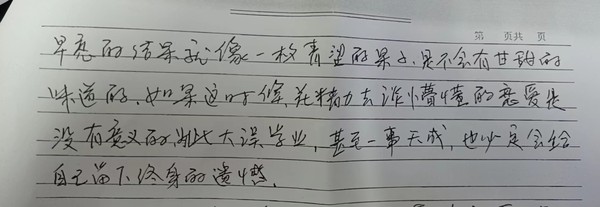 第 页共 页
早恋的结果就像一枚青望的果子,是不会有甘甜的
味道的,如果这时候,花精力去涉懵懂的恋爱是
没有意义的,从此大误学业,甚至一事无成,也必定会给
自己留下终身的遗憾。